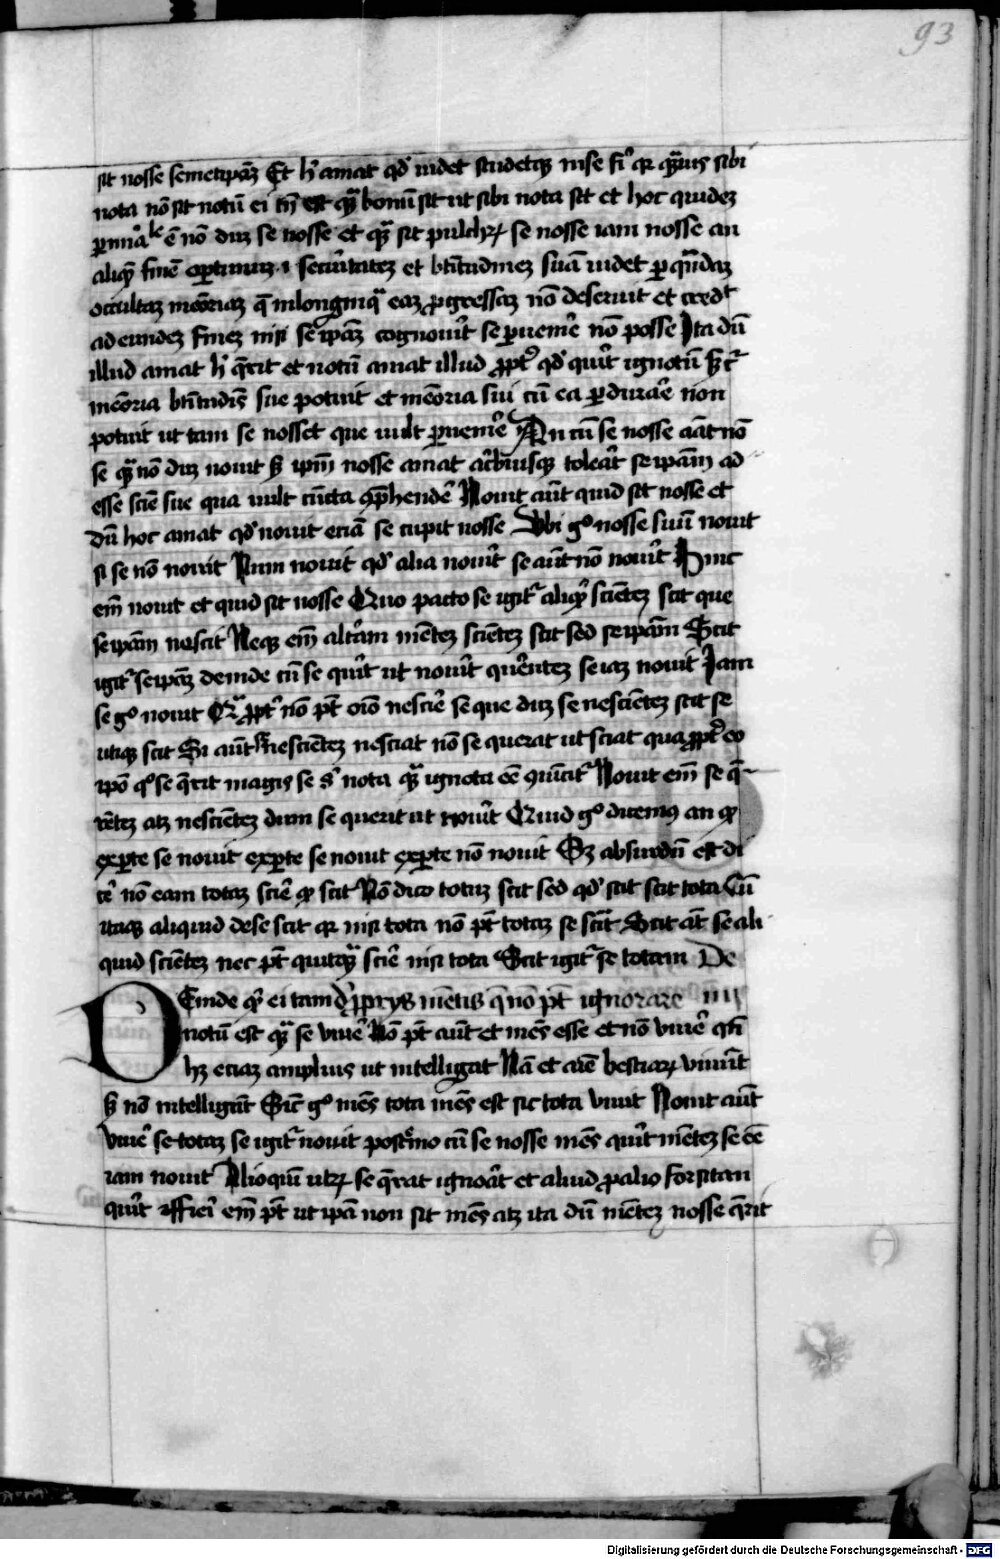 93
sit nosse semetipaȝ Et hͨ amat qď uidet studetqȝ in se fiͥ qr qͣuis sibi
nota nō sit notū ei tn̄ est qͣ bonū sit ut sibi nota sit et hoc quideȝ
ē nō duȝ se nosse et qͣ sit pulchꝝ se nosse iam nosse an
aliqͣ finē optimuȝ .i securitateȝ et bt̄itudineȝ suā uidet ꝑ quādaȝ
occultaȝ meōriaȝ q̄ in longinqͣ eaȝ ꝓgressaȝ nō deseruit et credt
ad eundeȝ fineȝ nisi seipāȝ cognouit̉ se ꝑuenire nō posse Ita dū
illud amat hͨ q̄rit et notū amat illud ꝓpt̉ qď querit ignotū
meōria bt̄itudīs sue potuit et meōria sui cū ea ꝑdurare non
potuit ut tam se nosset que uult ꝑuenire An cū se nosse amat nō
se qͣ nō duȝ nouit ipm̄ nosse amat acerbiusqȝ tolerat seipam̄ ad
esse scīe sue qua uult cūcta ꝯphendere Nouit aūt quid sit nosse et
dū hoc amat qď nouit eciā se cupit nosse Ubi gͦ nosse suū nouit
si se nō nouit Nam nouit qď alia nouit̉ se aūt nō nouit̉ Hinc
em̄ nouit et quid sit nosse Quo pacto se igit̉ aliqͥd sciēteȝ scit que
seipam̄ nescit Neqȝ em̄ altām mēteȝ sciēteȝ scit sed seipam̄ Scit
igit̉ seipāȝ deinde cū se querit ut nouit̉ querēteȝ se iaȝ nouit Iam
se gͦ nouit Qͣ ꝓpt̉ nō pt̄ oīo nescire se que duȝ se nesciēteȝ scit se
utiqȝ scit Si aūt se nesciēteȝ nesciat nō se querat ut sciat qua ꝓpt̉ eo
ipō qͦ se q̄rit magis se sͥ nota qͣ ignota eē ꝯuīcit̉ Nouit em̄ se q̄
rēteȝ atȝ nesciēteȝ dum se querit ut nouit̉ Quid gͦ dicemꝰ an qͦd
exꝑte se nouit exꝑte se nouit exꝑte nō nouit Sȝ absurdū est di
ce᷑ nō eam totaȝ scire qͦd scit Nō dico totuȝ scit sed qď scit scit tota Cū
itaqȝ aliquid de se scit qr nisi tota nō pt̄ totaȝ se scit Scit aūt se ali
quid sciēteȝ nec pt̄ quitqͣ scire nisi tota Scit igit̉ se totam De
Deinde qͥd ei tam d̓ ꝓprijs mētis q̄ nō pt̄ ignorare iiij
notū est qͣ se viuere Nō pt̄ aūt et mēs esse et nō viuere qn̄
hȝ eciaȝ amplius ut intelligat Nā et aīe bestiaꝝ viuūt
sȝ nō intelligūt Sic gͦ mēs tota mēs est sic tota viuit Nouit aūt
viuere se totaȝ se igit̉ nouit postremo cū se nosse mēs querit mēteȝ se eē
iam nouit Alioquī utꝝ se q̄rat ignorat et aliud ꝓ alio forsitan
querit affici em̄ pt̄ ut ipā non sit mēs atȝ ita dū mēteȝ nosse q̄rit
Digitalisierung gefördert durch die Deutsche Forschungsgemeinschaft - DFG